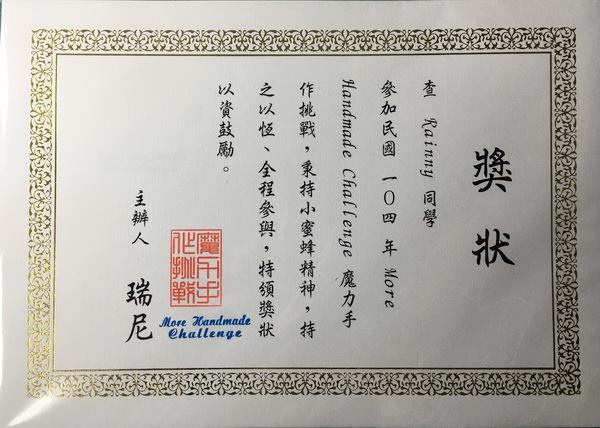 獎狀
查 Rainny 同學
參加民國 一〇四 年 More
Handmade Challenge 魔力手
作挑戰，秉持小蜜蜂精神，持
之以恆、全程參與，特頒獎狀
以資鼓勵。
主辦人 瑞尼
魔力手
作挑戰
More Handmade
Challenge